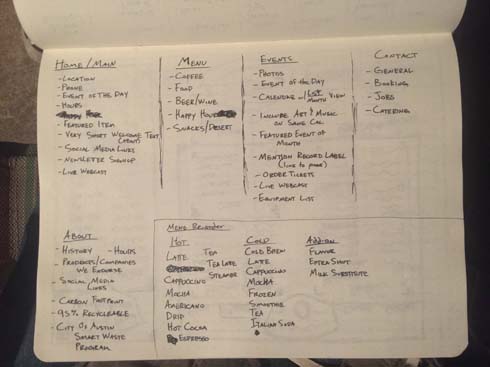 Home/Main
- Location
- Phone
- Event of the Day
- Hours
- Featured Item
- Very Short Welcome Text
(About)
- Social Media Links
- Newsletter Signup
- Live Webcast
Menu
- Coffee
- Food
- Beer/Wine
- Happy Hour
- Snacks/Desert
Events
- Photos
- Event of the Day
- Calendar - List View
Month
- Include Art & Music
on Same Cal.
- Featured Event of
Month
- Mention Record Label
(link to page)
- Order Tickets
- Live Webcast
- Equipment List
Contact
- General
- Booking
- Jobs
- Catering
About
- History - Hours
- Products/Companies
We Endorse
- Social Media
Links
- Carbon Footprint
- 95% Recycleable
- City of Austin
Smart Waste
Program
Menu Reorder
Hot
Latte
Cappuccino
Mocha
Americano
Drip
Hot Cocoa
Espresso
Tea
Tea Late
Steamer
Cold
Cold Brew
Late
Cappuccino
Mocha
Frozen
Smoothie
Tea
Italian Soda
Add-on
Flavor
Extra Shot
Milk Substitute